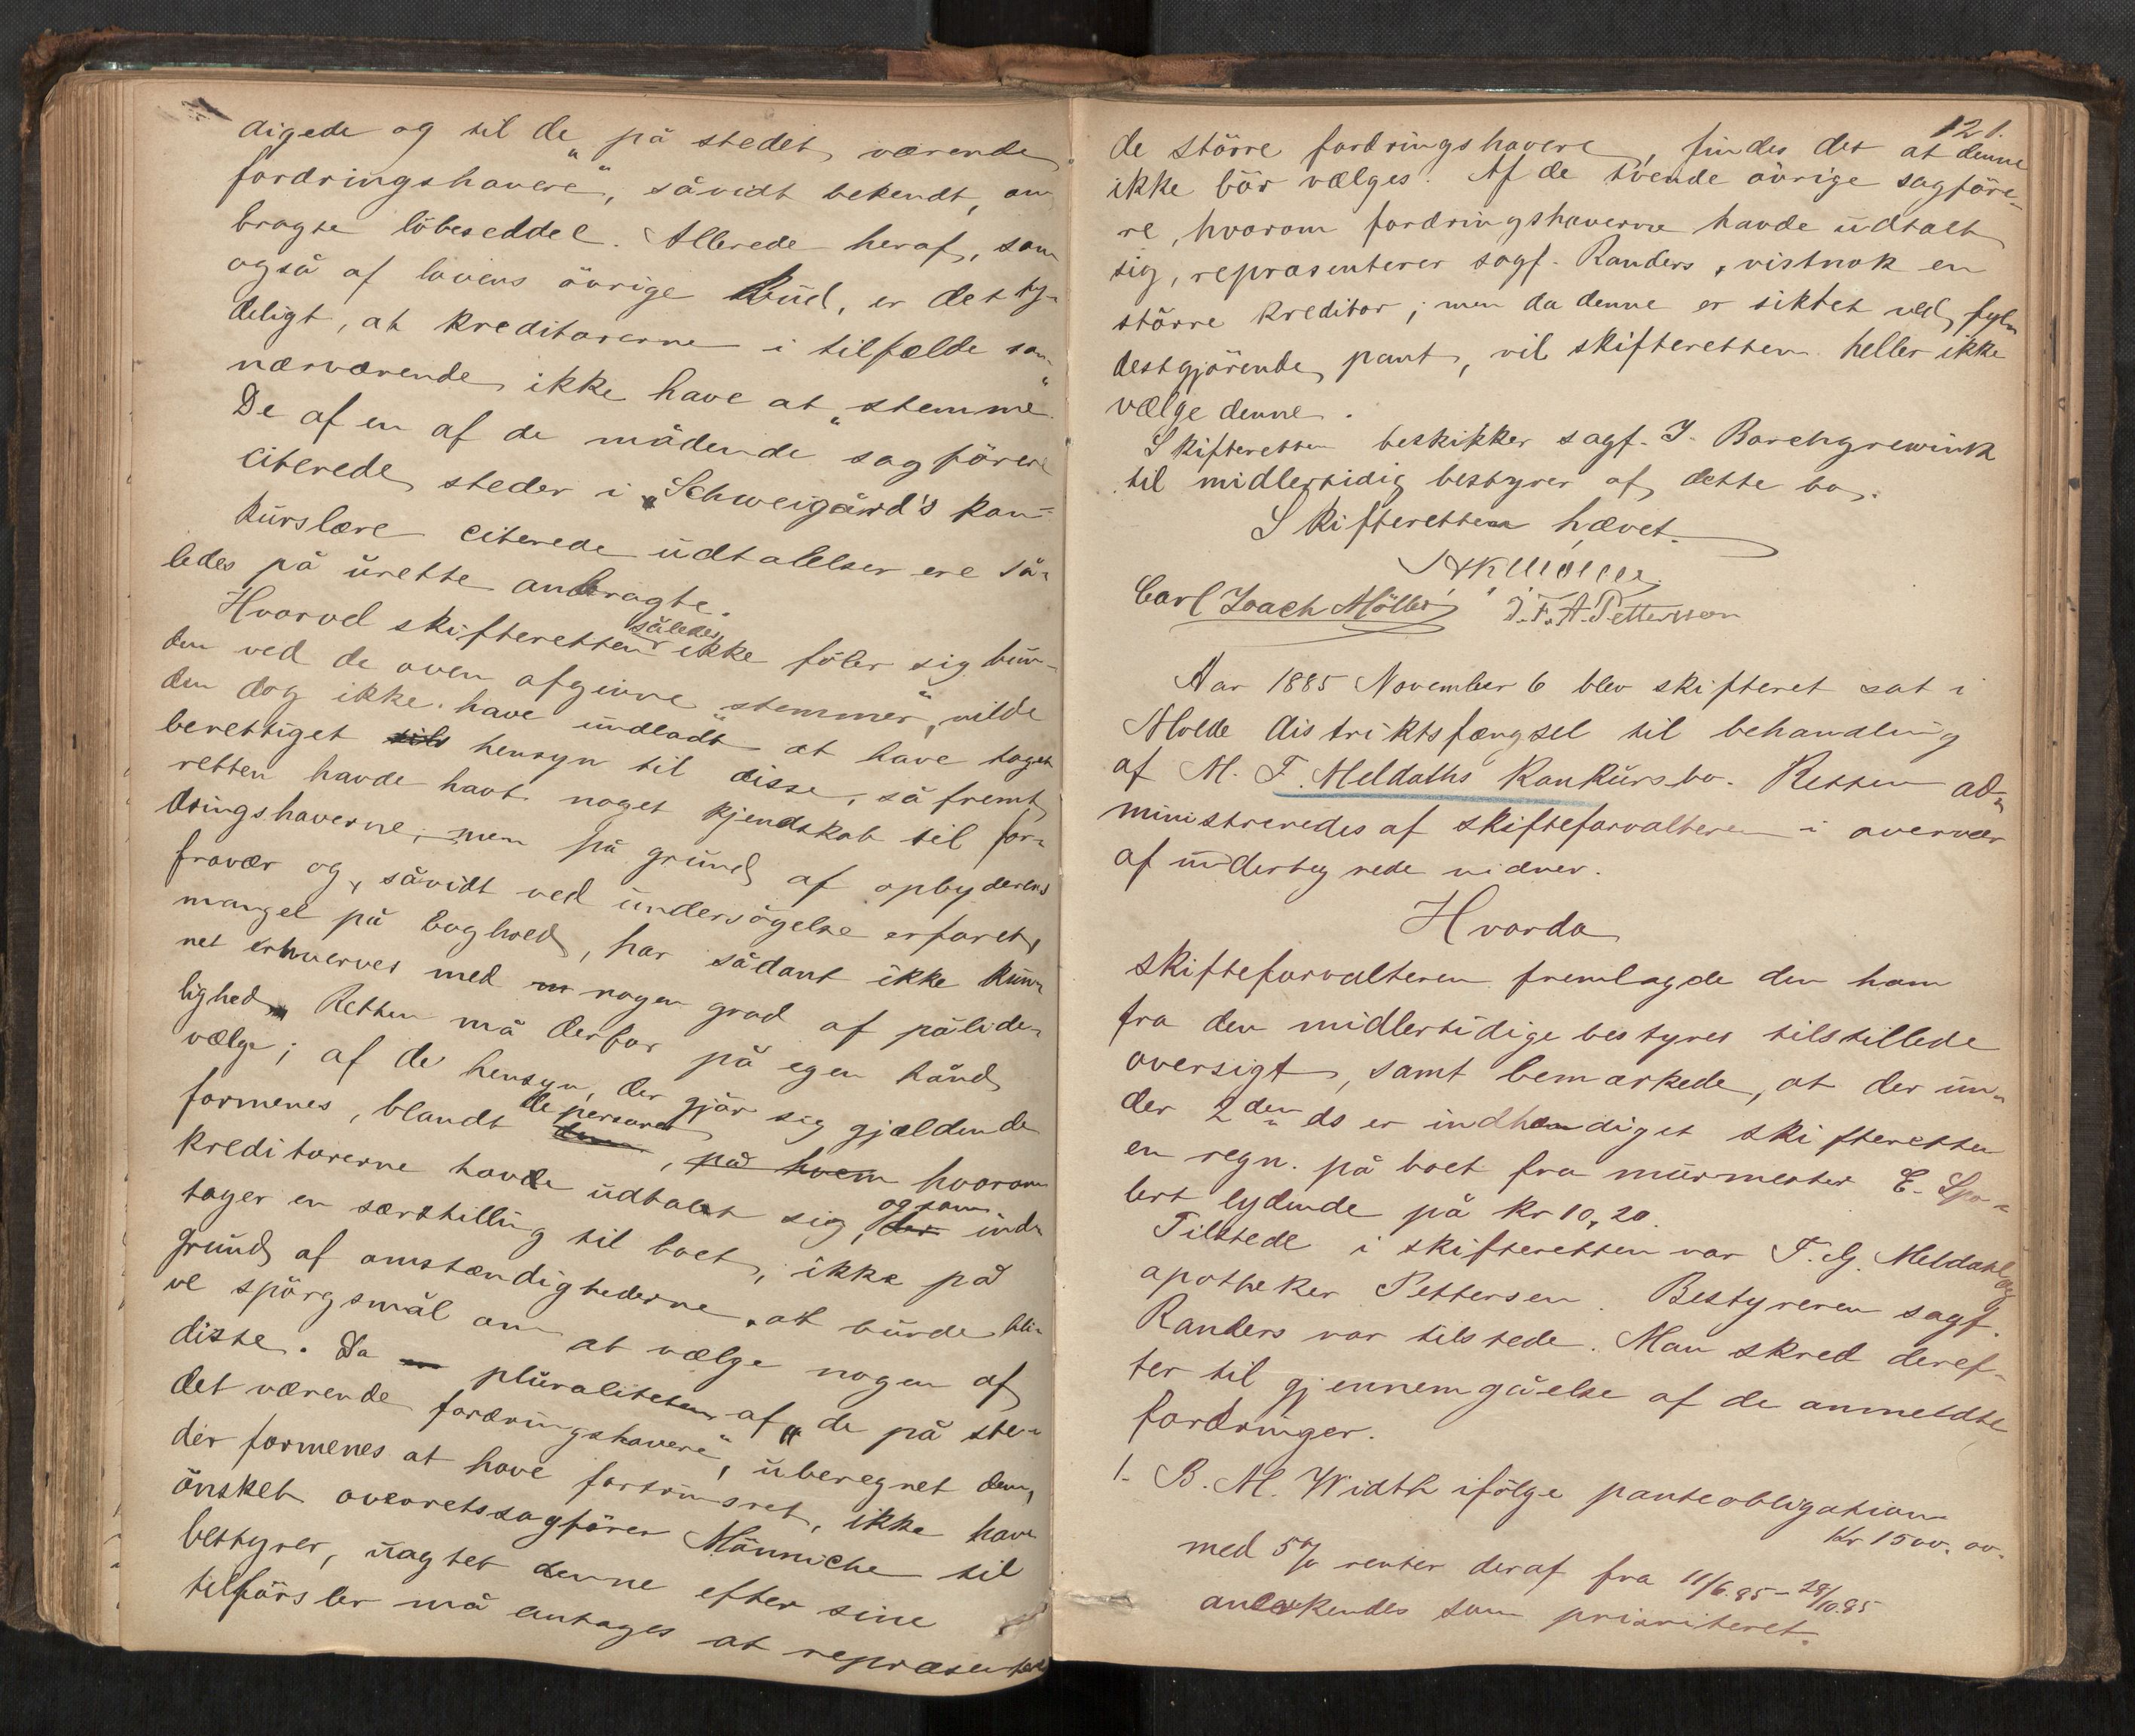 digede og til de „på stedet værende
fordringshavere“, såvidt bekendt, om
bragte löbeseddel. Allerede heraf, som
også af lovens övrige bud, er det ty-
deligt, at kreditorerne i tilfælde som
nærværende ikke have at „stemme“.
De af en af de mödende sagförere
citerede steder i Schweigård's kon-
kurslære citerede udtalelser ere så-
ledes på urette anbragte.
Hvorvel skifteretten således ikke föler sig bun-
den ved de oven afgivne „stemmer“, vilde
den dog ikke have undladt at have taget
berettiget hensyn til disse, så fremt
retten havde havt noget kjendskab til for-
dringshaverne; men på grund af opbyderens
fravær og, såvidt ved undersögelse erfaret,
mangel på boghold, har sådant ikke kun-
net erhverves med nogen grad af pålide-
lighed. Retten må derfor på egen hånd
vælge; af de hensyn, der gjör sig gjældende
formenes, blandt de personer, på hvem hvorom
kreditorerne havde udtalt sig, og som ind-
tager en særstilling til boet, ikke på
grund af omstændighederne, at burde bli-
ve spörgsmål om at vælge nogen af
disse. Da pluraliteten af „de på ste-
det værende fordringshavere“, uberegnet dem,
der formenes at have fortrinsret, ikke have
önsket overretssagförer Mönniche til
bestyrer, uagtet denne efter sine
tilförsler må antages at repræsentere
121.
de större fordringshavere, findes det at denne
ikke bör vælges. Af de tvende övrige sagföre-
re, hvorom fordringshaverne havde udtalt
sig, repræsenterer sagf. Randers, vistnok en
större kreditor; men da denne er sikret ved fyl-
destgjörende pant, vil skifteretten heller ikke
vælge denne.
Skifteretten beskikker sagf. J. Borchgrewink
til midlertidig bestyrer af dette bo.
Skifteretten hævet.
Carl Joach Möller J. F. A. Petterson
Aar 1885 November 6 blev skifteret sat i
Molde distriktsfængsel til behandling
af M. F. Meldahls konkursbo. Retten ad-
ministreredes af skifteforvalteren i overvær
af undertegnede vidner.
Hvorda
skifteforvalteren fremlagde den ham
fra den midlertidige bestyrer tilstillede
oversigt, samt bemærkede, at der un-
der 2den ds er indhændiget skifteretten
en regn. på boet fra murmester E. Spo-
lert lydende på kr 10,20.
Tilstede i skifteretten var F. G. Meldahl og
apotheker Pettersen. Bestyreren sagf.
Randers var tilstede. Man skred deref-
ter til gjennemgåelse af de anmeldte
fordringer.
1. B. M. Width ifölge panteobligation
Kr. 1500. oo.
med 5% renter deraf fra 11/6.85 – 28/10.85
anerkendes som prioriteret.